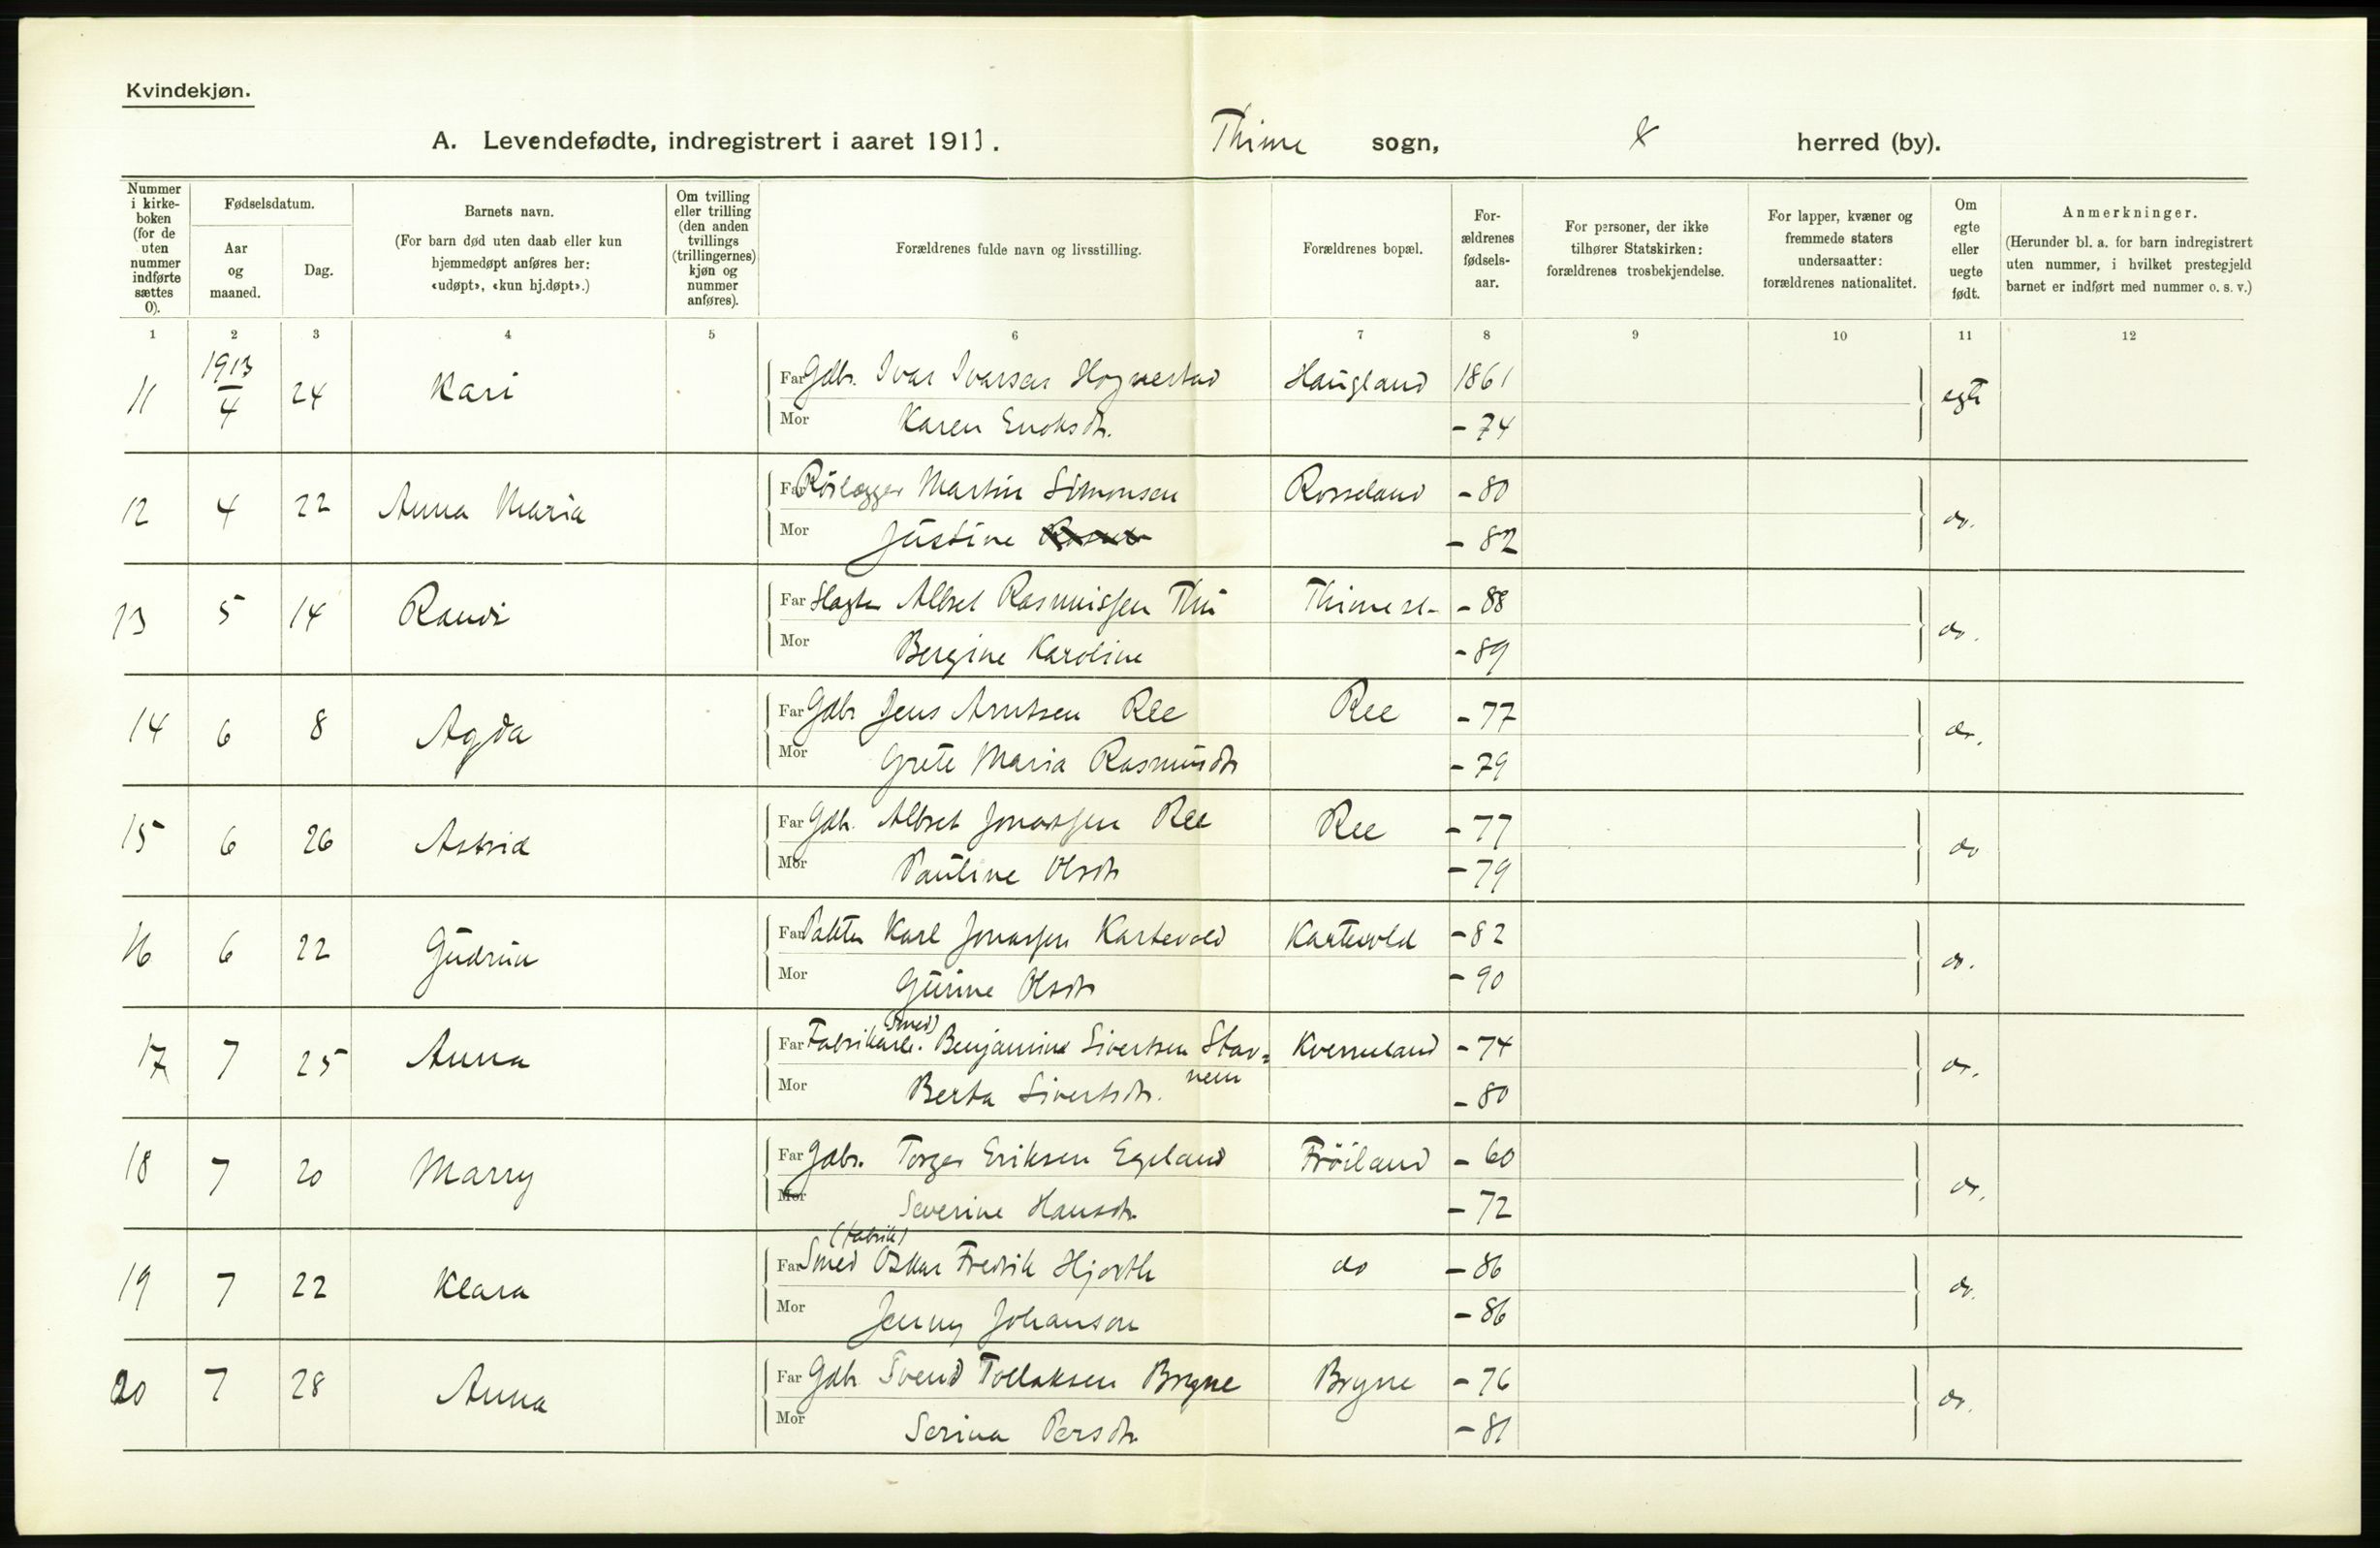 Kvindekjøn.
A. Levendefødte, indregistrert i aaret 1913. Thime sogn, herred (by).
Nummer i kirkeboken (for de uten nummer indførte sættes 0).
Fødselsdatum.
Aar og maaned.
Dag.
Barnets navn.
(For barn død uten daab eller kun hjemmedøpt anføres her: «udøpt», «kun hj.døpt».)
Om tvilling eller trilling (den anden tvillings (trillingernes) kjøn og nummer anføres).
Forældrenes fulde navn og livsstilling.
Forældrenes bopæl.
Forældrenes fødselsaar.
For personer, der ikke tilhører Statskirken: forældrenes trosbekjendelse.
For lapper, kvæner og fremmede staters undersaatter: forældrenes nationalitet.
Om egte eller uegte født.
Anmerkninger.
(Herunder bl. a. for barn indregistrert uten nummer, i hvilket prestegjeld barnet er indført med nummer o. s. v.)
1 2 3 4 5 6 7 8 9 10 11 12
11 1913/4 24 Kari Far Gdbr. Ivar Ivarsen Hognestad Haugland 1861 egte
Mor Karen Enoksdtr. - 74
12 4 22 Anna Maria Far Rörlægger Martin Simonsen Rosseland - 80 do.
Mor Justine - 82
13 5 14 Randi Far Slagter Albret Rasmussen Thu Thime st. - 88 do.
Mor Bergine Karoline - 89
14 6 8 Agda Far Gdbr Jens Arntsen Ree Ree - 77 do.
Mor Grete Maria Rasmusdtr - 79
15 6 26 Astrid Far Gdbr. Albret Jonassen Ree Ree - 77 do
Mor Pauline Olsdtr - 79
16 6 22 Gudrun Far Karl Jonassen Kartevold Kartevold - 82 do.
Mor Gurine Olsdtr - 90
(smed)
17 7 25 Anna Far Fabrikarb. Benjamine Sivertsen Stav= Kverneland - 74 do.
nem
Mor Berta Sivertsdtr. - 80
18 7 20 Marry Far Gdbr. Torger Eriksen Egeland Fröiland - 60 do.
Mor Severine Hansdtr. - 72
(fabrik)
19 7 22 Klara Far Smed Oskar Fredrik Hjorth do - 86 do.
Mor Jenny Johanson - 86
20 7 28 Anna Far Gdbr Svend Tollaksen Bryne Bryne - 76 do.
Mor Serina Persdtr. - 81